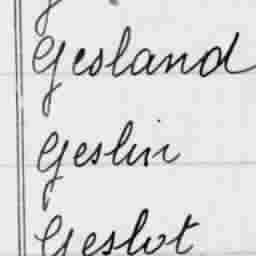 Gesland
Geslin
Geslot